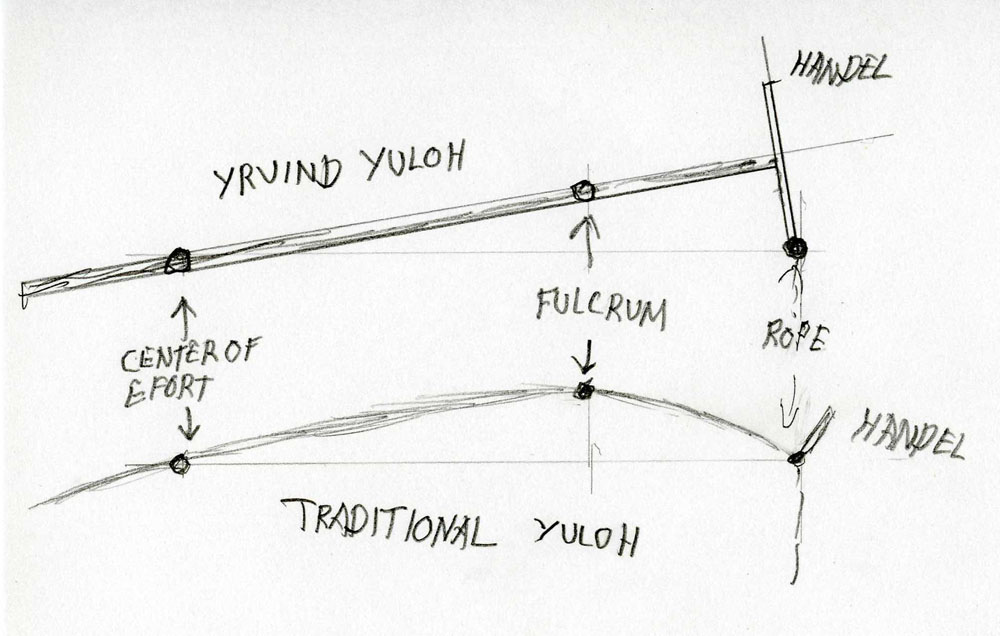 HANDEL
YRVIND YULOH
FULCRUM
ROPE
CENTER OF
EFORT
HANDEL
TRADITIONAL YULOH